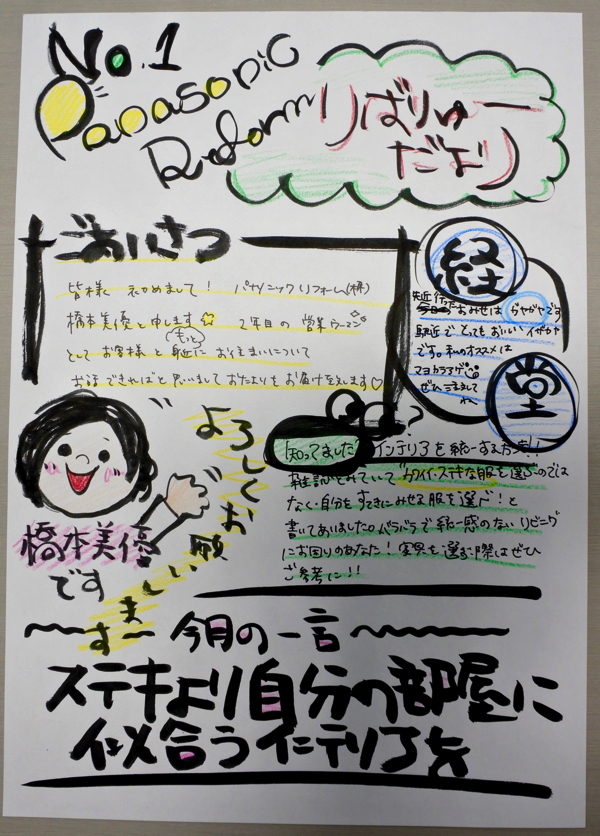 No.1
Panasonic
Reform
りばりゅー
だより
ごあいさつ
皆様 初めまして! パナソニックリフォーム(株)
橋本美優と申します 2年目の営業ウーマン
としてお客様ともっと身近にお住まいについて
お話できればと思いましておたよりをお届けをします♡
経
堂
最近行ったお店は らやがやです
駅近でとってもおいしいイザカヤ
です。私のオススメは
マヨカラアゲ
ぜひ 行ってみて
ね
知ってました? インテリアを統一する方法!!
雑誌をみていて"カワイイ・ステキな服を選ぶのでは
なく、自分をすてきにみせる服を選べ!と
書いてありました。バラバラで統一感のないリビングに
お困りのあなた!家具を選ぶ際はぜひ
ご参考に!!
橋本美優
です
よろしくお願いします
今月の一言
ステキより自分の部屋に
似合うインテリアを